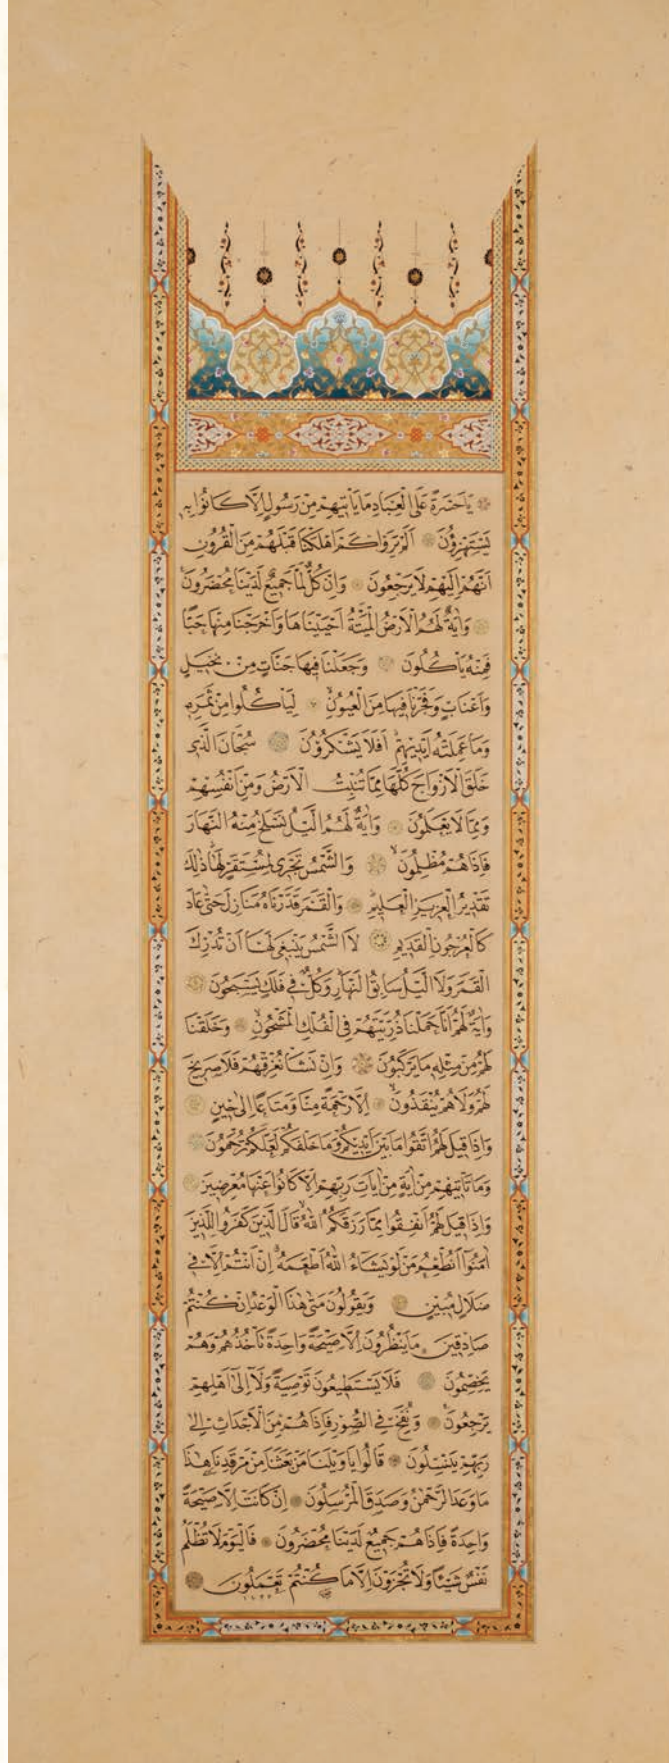 يَا حَسْرَةً عَلَى الْعِبَادِ مَا يَأْتِيهِمْ مِنْ رَسُولٍ اِلَّا كَانُوا بِهِ
يَسْتَهْزِؤُنَ اَلَمْ يَرَوْا كَمْ اَهْلَكْنَا قَبْلَهُمْ مِنَ الْقُرُونِ
اَنَّهُمْ اِلَيْهِمْ لَا يَرْجِعُونَ وَاِنْ كُلٌّ لَمَّا جَمِيعٌ لَدَيْنَا مُحْضَرُونَ
وَاٰيَةٌ لَهُمُ الْاَرْضُ الْمَيْتَةُ اَحْيَيْنَاهَا وَاَخْرَجْنَا مِنْهَا حَبًّا
فَمِنْهُ يَأْكُلُونَ وَجَعَلْنَا فِيهَا جَنَّاتٍ مِنْ نَخِيلٍ
وَاَعْنَابٍ وَفَجَّرْنَا فِيهَا مِنَ الْعُيُونِ لِيَأْكُلُوا مِنْ ثَمَرِهِ
وَمَا عَمِلَتْهُ اَيْدِيهِمْ اَفَلَا يَشْكُرُونَ سُبْحَانَ الَّذِي
خَلَقَ الْاَزْوَاجَ كُلَّهَا مِمَّا تُنْبِتُ الْاَرْضُ وَمِنْ اَنْفُسِهِمْ
وَمِمَّا لَا يَعْلَمُونَ وَاٰيَةٌ لَهُمُ الَّيْلُ نَسْلَخُ مِنْهُ النَّهَارَ
فَاِذَا هُمْ مُظْلِمُونَ وَالشَّمْسُ تَجْرِي لِمُسْتَقَرٍّ لَهَا ذٰلِكَ
تَقْدِيرُ الْعَزِيزِ الْعَلِيمِ وَالْقَمَرَ قَدَّرْنَاهُ مَنَازِلَ حَتّٰى عَادَ
كَالْعُرْجُونِ الْقَدِيمِ لَا الشَّمْسُ يَنْبَغِي لَهَا اَنْ تُدْرِكَ
الْقَمَرَ وَلَا الَّيْلُ سَابِقُ النَّهَارِ وَكُلٌّ فِي فَلَكٍ يَسْبَحُونَ
وَاٰيَةٌ لَهُمْ اَنَّا حَمَلْنَا ذُرِّيَّتَهُمْ فِي الْفُلْكِ الْمَشْحُونِ وَخَلَقْنَا
لَهُمْ مِنْ مِثْلِهِ مَا يَرْكَبُونَ وَاِنْ نَشَأْ نُغْرِقْهُمْ فَلَا صَرِيخَ
لَهُمْ وَلَا هُمْ يُنْقَذُونَ اِلَّا رَحْمَةً مِنَّا وَمَتَاعًا اِلٰى حِينٍ
وَاِذَا قِيلَ لَهُمُ اتَّقُوا مَا بَيْنَ اَيْدِيكُمْ وَمَا خَلْفَكُمْ لَعَلَّكُمْ تُرْحَمُونَ
وَمَا تَأْتِيهِمْ مِنْ اٰيَةٍ مِنْ اٰيَاتِ رَبِّهِمْ اِلَّا كَانُوا عَنْهَا مُعْرِضِينَ
وَاِذَا قِيلَ لَهُمْ اَنْفِقُوا مِمَّا رَزَقَكُمُ اللّٰهُ قَالَ الَّذِينَ كَفَرُوا لِلَّذِينَ
اٰمَنُوا اَنُطْعِمُ مَنْ لَوْ يَشَاءُ اللّٰهُ اَطْعَمَهُ اِنْ اَنْتُمْ اِلَّا فِي
ضَلَالٍ مُبِينٍ وَيَقُولُونَ مَتٰى هٰذَا الْوَعْدُ اِنْ كُنْتُمْ
صَادِقِينَ مَا يَنْظُرُونَ اِلَّا صَيْحَةً وَاحِدَةً تَأْخُذُهُمْ وَهُمْ
يَخِصِّمُونَ فَلَا يَسْتَطِيعُونَ تَوْصِيَةً وَلَا اِلٰى اَهْلِهِمْ
يَرْجِعُونَ وَنُفِخَ فِي الصُّورِ فَاِذَا هُمْ مِنَ الْاَجْدَاثِ اِلٰى
رَبِّهِمْ يَنْسِلُونَ قَالُوا يَا وَيْلَنَا مَنْ بَعَثَنَا مِنْ مَرْقَدِنَا هٰذَا
مَا وَعَدَ الرَّحْمٰنُ وَصَدَقَ الْمُرْسَلُونَ اِنْ كَانَتْ اِلَّا صَيْحَةً
وَاحِدَةً فَاِذَا هُمْ جَمِيعٌ لَدَيْنَا مُحْضَرُونَ فَالْيَوْمَ لَا تُظْلَمُ
نَفْسٌ شَيْئًا وَلَا تُجْزَوْنَ اِلَّا مَا كُنْتُمْ تَعْمَلُونَ